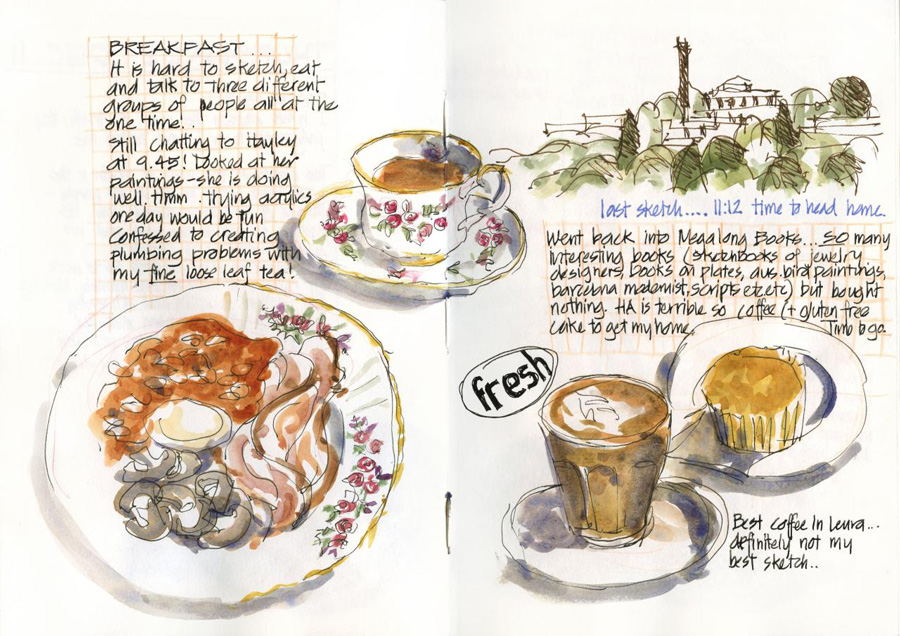 BREAKFAST...
It is hard to sketch, eat
and talk to three different
groups of people all at the
one time..
Still chatting to Hayley
at 9.45! Looked at her
paintings - she is doing
well, Hmm.. trying acrylics
one day would be fun
Confessed to creating
plumbing problems with
my fine loose leaf tea!
last sketch.... 11:12 time to head home.
Went back into Megalong Books... so many
interesting books (sketchbooks of jewelry
designers, books on plates, aus. bird paintings,
barcelona modernist, scripts etc etc) but bought
nothing. HA is terrible so coffee (+ gluten free
cake to get my home.
Time to go.
fresh
Best coffee in Leura...
definitely not my
best sketch..